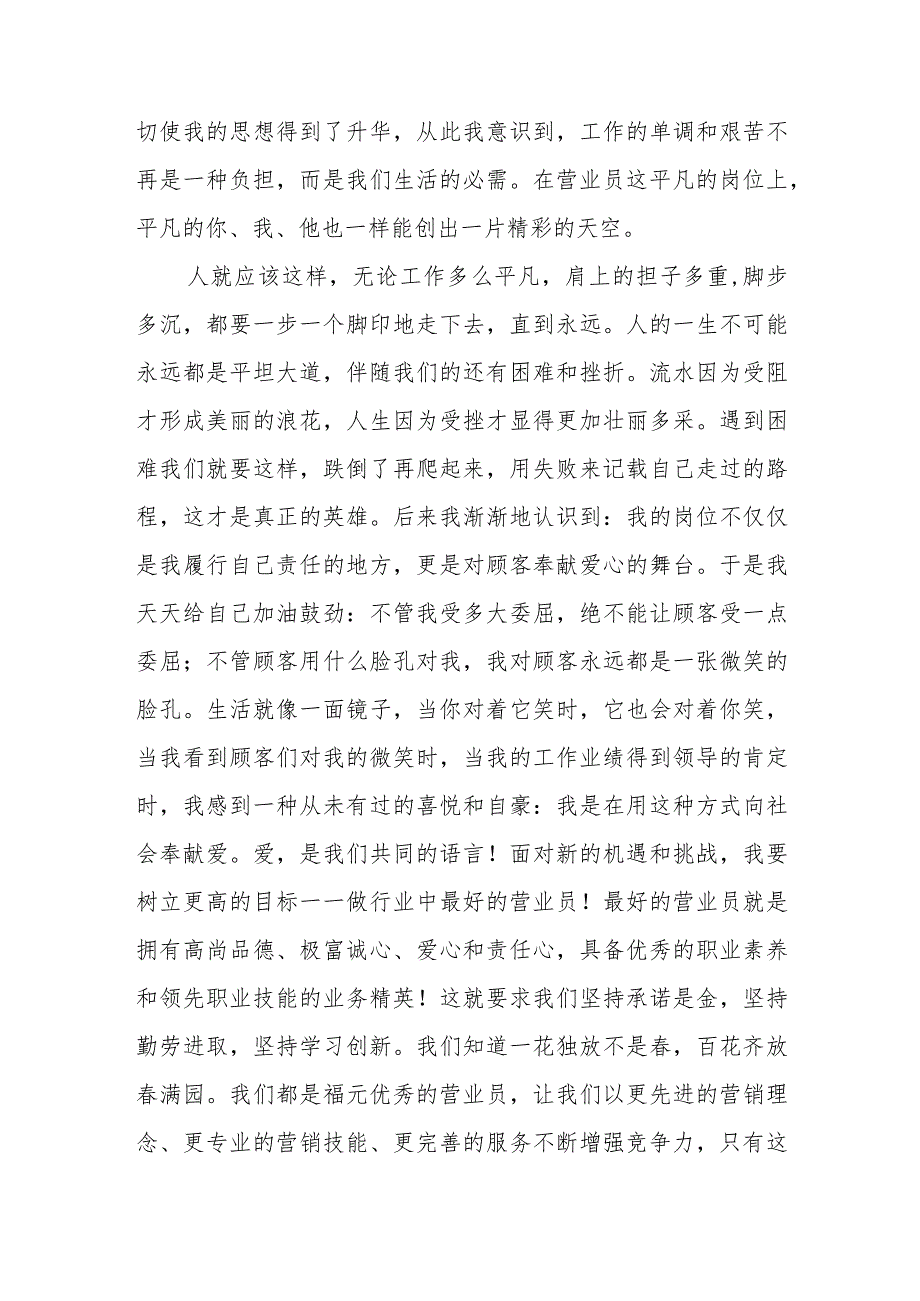 切使我的思想得到了升华，从此我意识到，工作的单调和艰苦不
再是一种负担，而是我们生活的必需。在营业员这平凡的岗位上，
平凡的你、我、他也一样能创出一片精彩的天空。
人就应该这样，无论工作多么平凡，肩上的担子多重,脚步
多沉，都要一步一个脚印地走下去，直到永远。人的一生不可能
永远都是平坦大道，伴随我们的还有困难和挫折。流水因为受阻
才形成美丽的浪花，人生因为受挫才显得更加壮丽多采。遇到困
难我们就要这样，跌倒了再爬起来，用失败来记载自己走过的路
程，这才是真正的英雄。后来我渐渐地认识到：我的岗位不仅仅
是我履行自己责任的地方，更是对顾客奉献爱心的舞台。于是我
天天给自己加油鼓劲：不管我受多大委屈，绝不能让顾客受一点
委屈；不管顾客用什么脸孔对我，我对顾客永远都是一张微笑的
脸孔。生活就像一面镜子，当你对着它笑时，它也会对着你笑，
当我看到顾客们对我的微笑时，当我的工作业绩得到领导的肯定
时，我感到一种从未有过的喜悦和自豪：我是在用这种方式向社
会奉献爱。爱，是我们共同的语言！面对新的机遇和挑战，我要
树立更高的目标一一做行业中最好的营业员！最好的营业员就是
拥有高尚品德、极富诚心、爱心和责任心，具备优秀的职业素养
和领先职业技能的业务精英！这就要求我们坚持承诺是金，坚持
勤劳进取，坚持学习创新。我们知道一花独放不是春，百花齐放
春满园。我们都是福元优秀的营业员，让我们以更先进的营销理
念、更专业的营销技能、更完善的服务不断增强竞争力，只有这